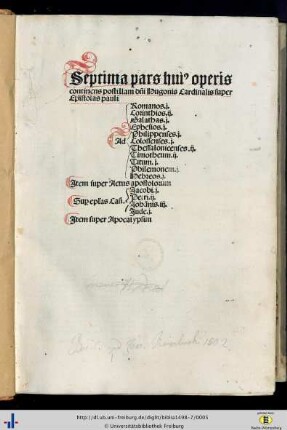 Septima pars hui⁹ operis
continens postillam dñi Hugonis Cardinalis super
Epistolas pauli
Ad
Romanos.j.
Corinthios.ij.
Galathas.j.
Ephesios.j.
Philippenses.j.
Colossenses.j.
Thessalonicenses.ij.
Timotheum.ij.
Titum.j.
Philemonem.j.
Hebreos.j.
Item super Actus apostolorum
Sup epłas Can.
Jacobi.j.
Petri.ij.
Johānis.iij.
Jude.j.
Item super Apocalypsim
http://dl.ub.uni-freiburg.de/diglit/biblia1498-7/0005
© Universitätsbibliothek Freiburg